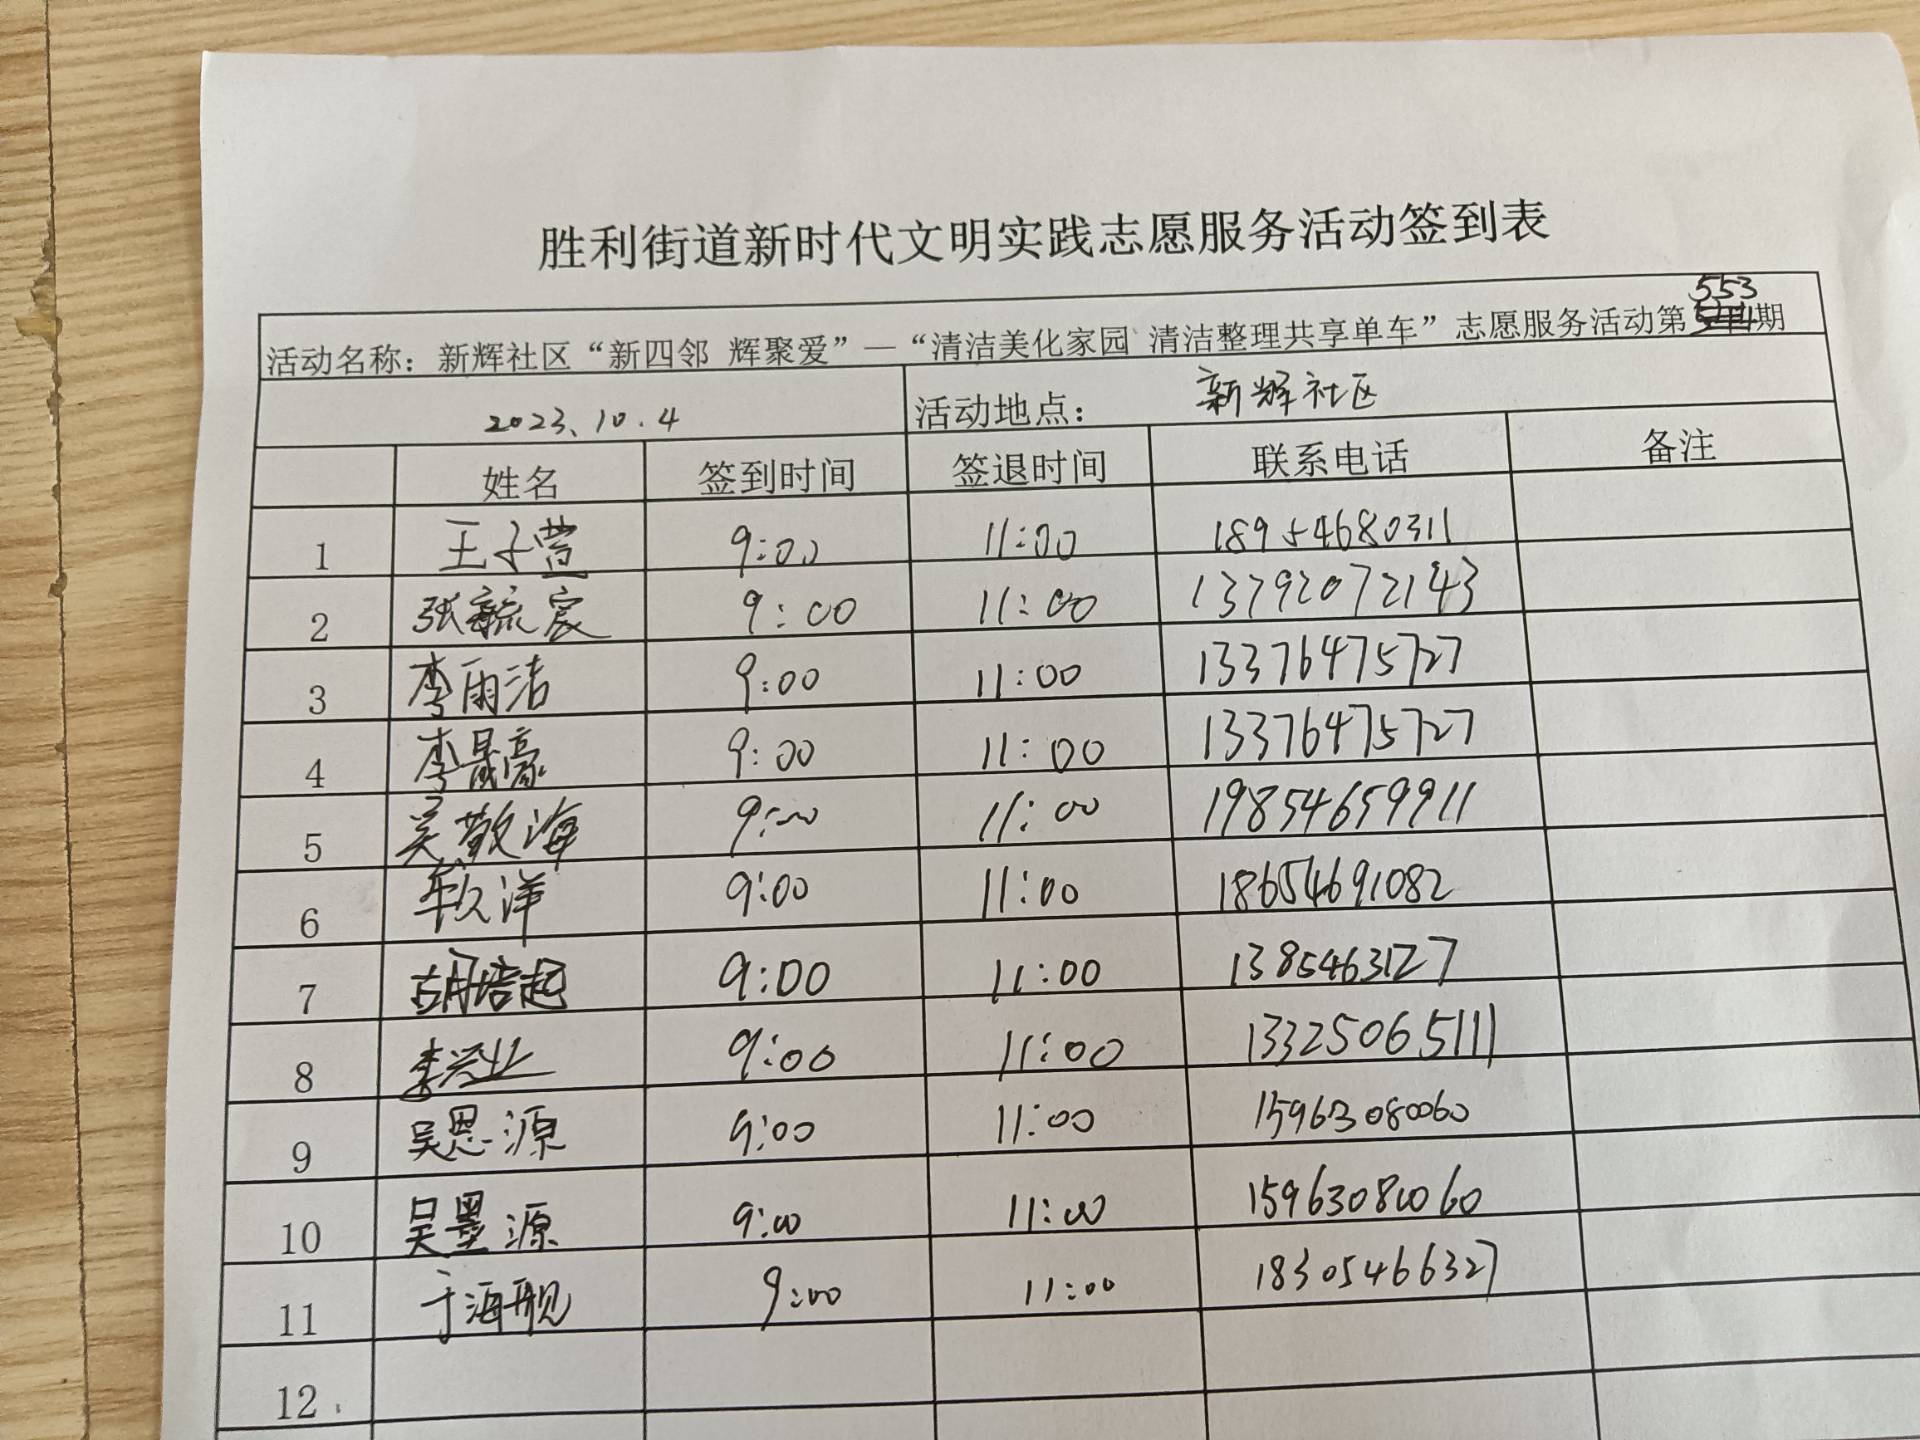 胜利街道新时代文明实践志愿服务活动签到表
活动名称：新辉社区“新四邻 辉聚爱”—“清洁美化家园 清洁整理共享单车”志愿服务活动第553期
2023.10.4 活动地点： 新辉社区
姓名 签到时间 签退时间 联系电话 备注
1 王子萱 9:00 11:00 18954680311
2 张毓宸 9:00 11:00 13792072143
3 李雨洁 9:00 11:00 13376475727
4 李晟豪 9:00 11:00 13376475727
5 吴敬海 9:00 11:00 19854659911
6 洋 9:00 11:00 18654691082
7 胡培起 9:00 11:00 1385463127
8 李兴业 9:00 11:00 13325065111
9 吴恩源 9:00 11:00 15963080060
10 吴墨源 9:00 11:00 15963080060
11 于海舰 9:00 11:00 18305466327
12